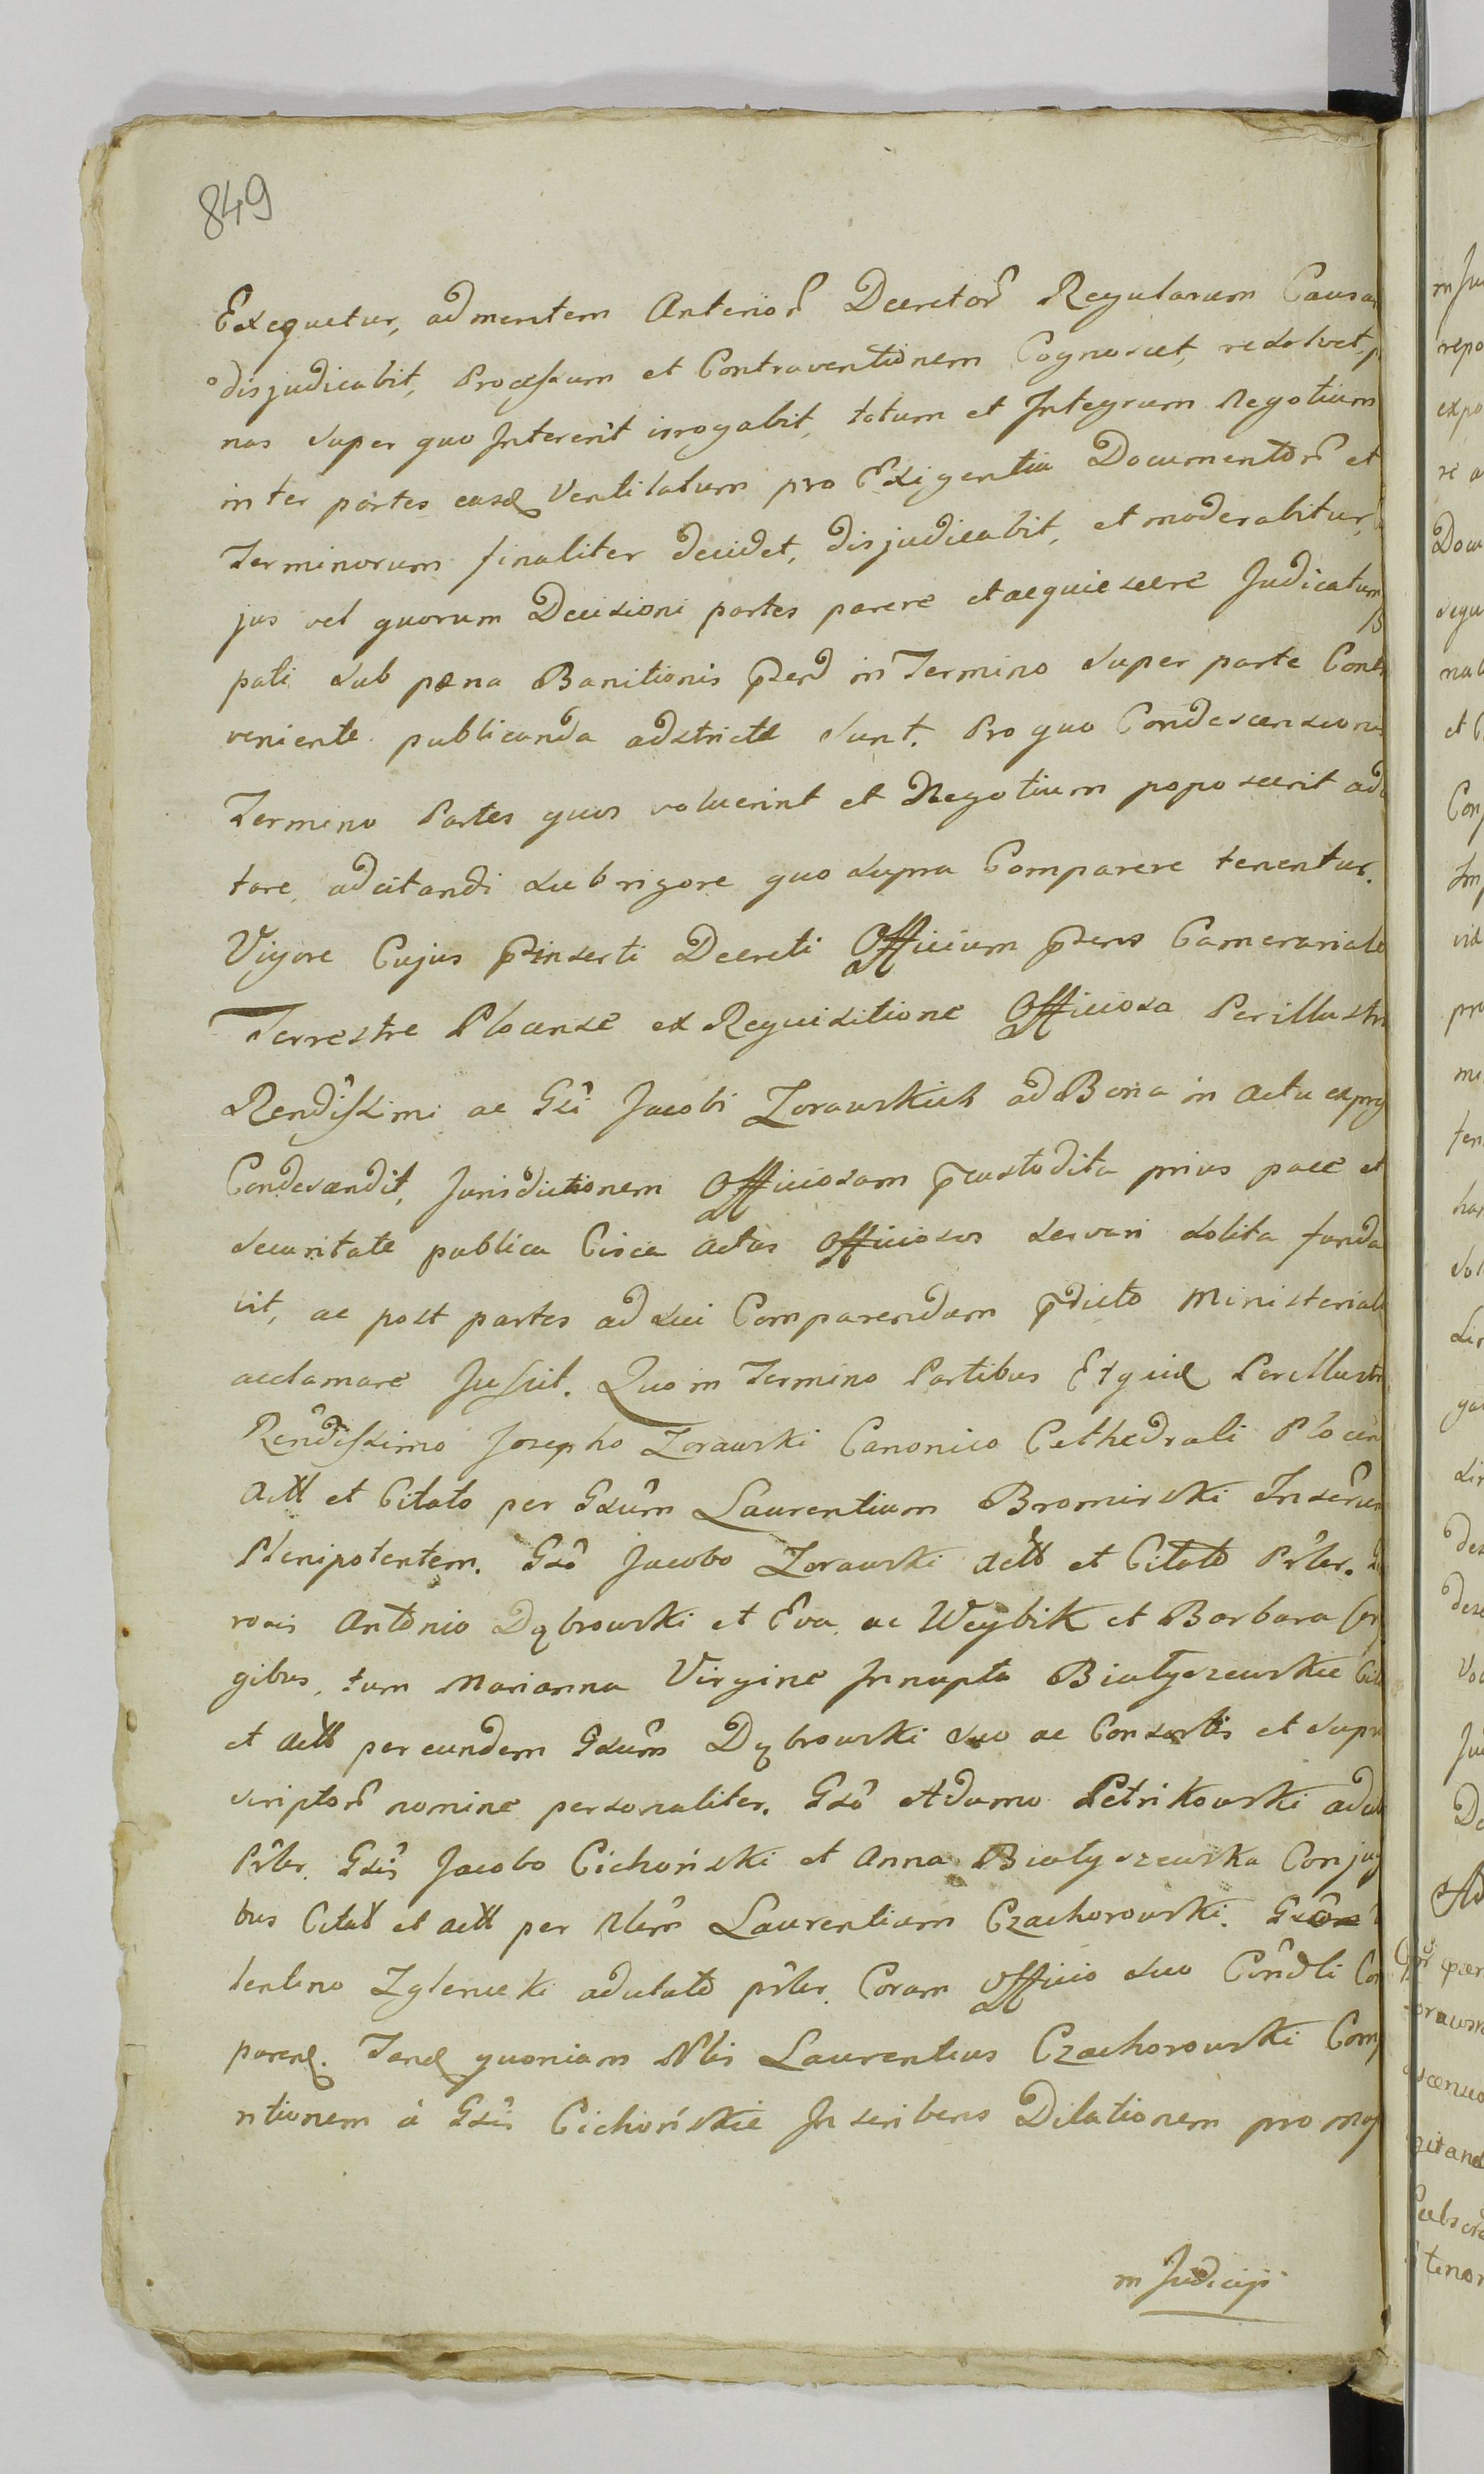 849
Exequetur, ad mentem Anterior Decretor Regularum Causar
disjudicabit, Processum et Contraventionem Cognoscet, resolvet, p
nas super quo Intererit irrogabit, totum et Integrum Negotium
inter partes easd Ventilatum pro Exigentia Documentor et
Terminorum finaliter decidet, disjudicabit, et moderabitur,
jus vel quorum Decisioni partes parere et acquiescere Judicatum
pati sub pæna Banitionis p̄send in Termino super parte Cont
veniente publicanda adstrictæ sunt. Pro quo Condescensiona
Termino Partes quos voluerint et Negotium poposcerit adc
tare, adcitandi sub rigore quo supra Comparere tenentur.
Vigore Cujus p̄inserti Decreti Officium p̄sens Camerariale
Terrestre Plocense ex Requisitione Officiosa Perillustr
Rendissimi ac Gsi Jacobi Zorawskich ad Bona in Actu expr
Condescendit, Jurisdictionem Officiosam p̄custodita prius pace et
securitate publica Circa Actus Officiosos servari solita funda
vit, ac post partes ad sui Comparendum p̄dicto Ministeriali
acclamare Jussit. Quo in Termino Partibus Etquid Perillustr
Rendissimo Josepho Zorawski Canonico Cathedrali Plocen
Actt et Citato per Gsum Laurentium Bromirski Inserun
Plenipotentem. Gso Jacobo Zorawski Actt et Citato Prler.
rosis Antonio Dąbrowski et Eva, ac Weybik et Barbara Con
gibus, tum Marianna Virgine Innupta Białyszewskie Cit
et Actt per eundem Gsum Dąbrowski suo ac Consortis et supra
scriptor nomine personaliter. Gso Adamo Petrikowski adcit
Prler. Gsis Jacobo Cichoński et Anna Białyszewska Conjug
bus Citat et actt per Nlem Laurentium Czachorowski.
lentino Zglenicki adcitato prler. Coram Officio suo Cōndli Com
parend. Tand quoniam Nlis Laurentius Czachorowski Com
ntionem à Gsis Cichońskie Inscribens Dilationem pro mg
m Judicij